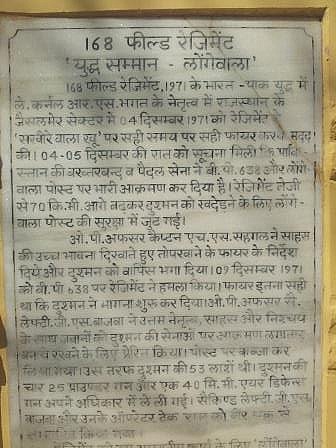 168 फील्ड रेजिमेंट
'युद्ध सम्मान - लोंगेवाला'
168 फील्ड रेजिमेंट, 1971 के भारत - पाक युद्ध में
ले. कर्नल आर. एस. भगत के नेतृत्व में राजस्थान के
जैसलमेर सेक्टर में 04 दिसम्बर 1971 का रेजिमेंट
वाला खू' पर सही समय पर सही फायर कर मदद
की। 04-05 दिसम्बर की रात को सूचना मिली कि पाकि
स्तान की बख्तरबन्द व पैदल सेना ने बी. पी. 638 और लोंगे
वाला पोस्ट पर भारी आक्रमण कर दिया है। रेजिमेंट तेजी
से 70 कि. मी. आगे बढ़कर दुश्मन को खदेड़ने के लिए लोंगे -
वाला पोस्ट की सुरक्षा में जुट गई।
ओ. पी. अफसर कैप्टन एच. एस. सहगल ने साहस
की उच्च भावना दिखाते हुए तोपखाने के फायर के निर्देश
दिये और दुश्मन को वापिस भगा दिया। 09 दिसम्बर 1971
को बी. पी. 638 पर रेजिमेंट ने हमला किया। फायर इतना सही
था कि दुश्मन ने भागना शुरू कर दिया। ओ. पी. अफसर से.
लेफ्टी. जी. एस. बाजवा ने उत्तम नेतृत्व, साहस और निश्चय
के साथ जवानों को दुश्मन की सेनाओं पर आक्रमण लगातार
बनाये रखने के लिए प्रेरित किया। पोस्ट पर कब्जा कर
लिया गया। उस तरफ दुश्मन की 53 लाशें थी। दुश्मन की
चार 25 पाउण्डर गन और एक 40 मि. मी. एयर डिफेन्स
गन अपने अधिकार में ले ली गई। सैकिण्ड लेफ्टी. जी. एस.
बाजवा और उनके ऑपरेटर को वीर चक्र से
किया गया।